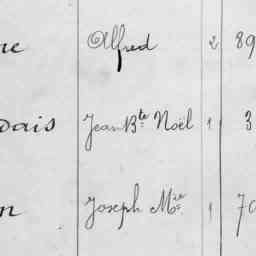 re Alfred 2 89
dais Jean Bte Noël 1 3
n Joseph Mie 1 70